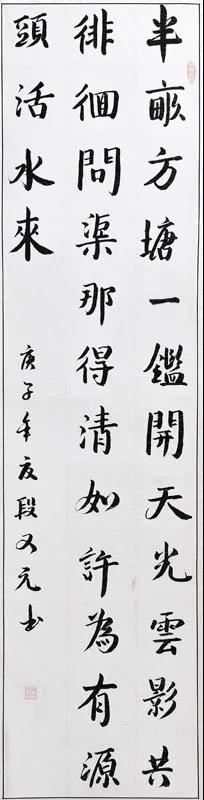 半畝方塘一鑑開天光雲影共
徘徊問渠那得清如許為有源
頭活水來
庚子年夏段又元书